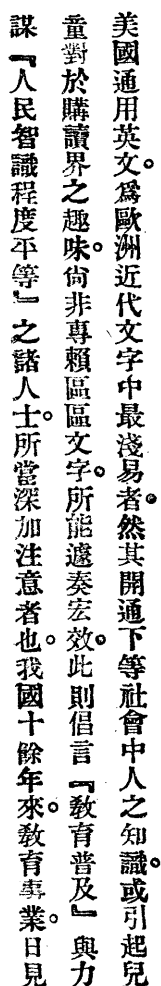 美國通用英文。爲歐洲近代文字中最淺易者。然其開通下等社會中人之知識。或引起兒
童對於購讀界之趣味。尙非專賴區區文字。所能遽奏宏效。此則倡言『敎育普及』與力
謀『人民智識程度平等』之諸人士。所當深加注意者也。我國十餘年來。敎育事業。日見